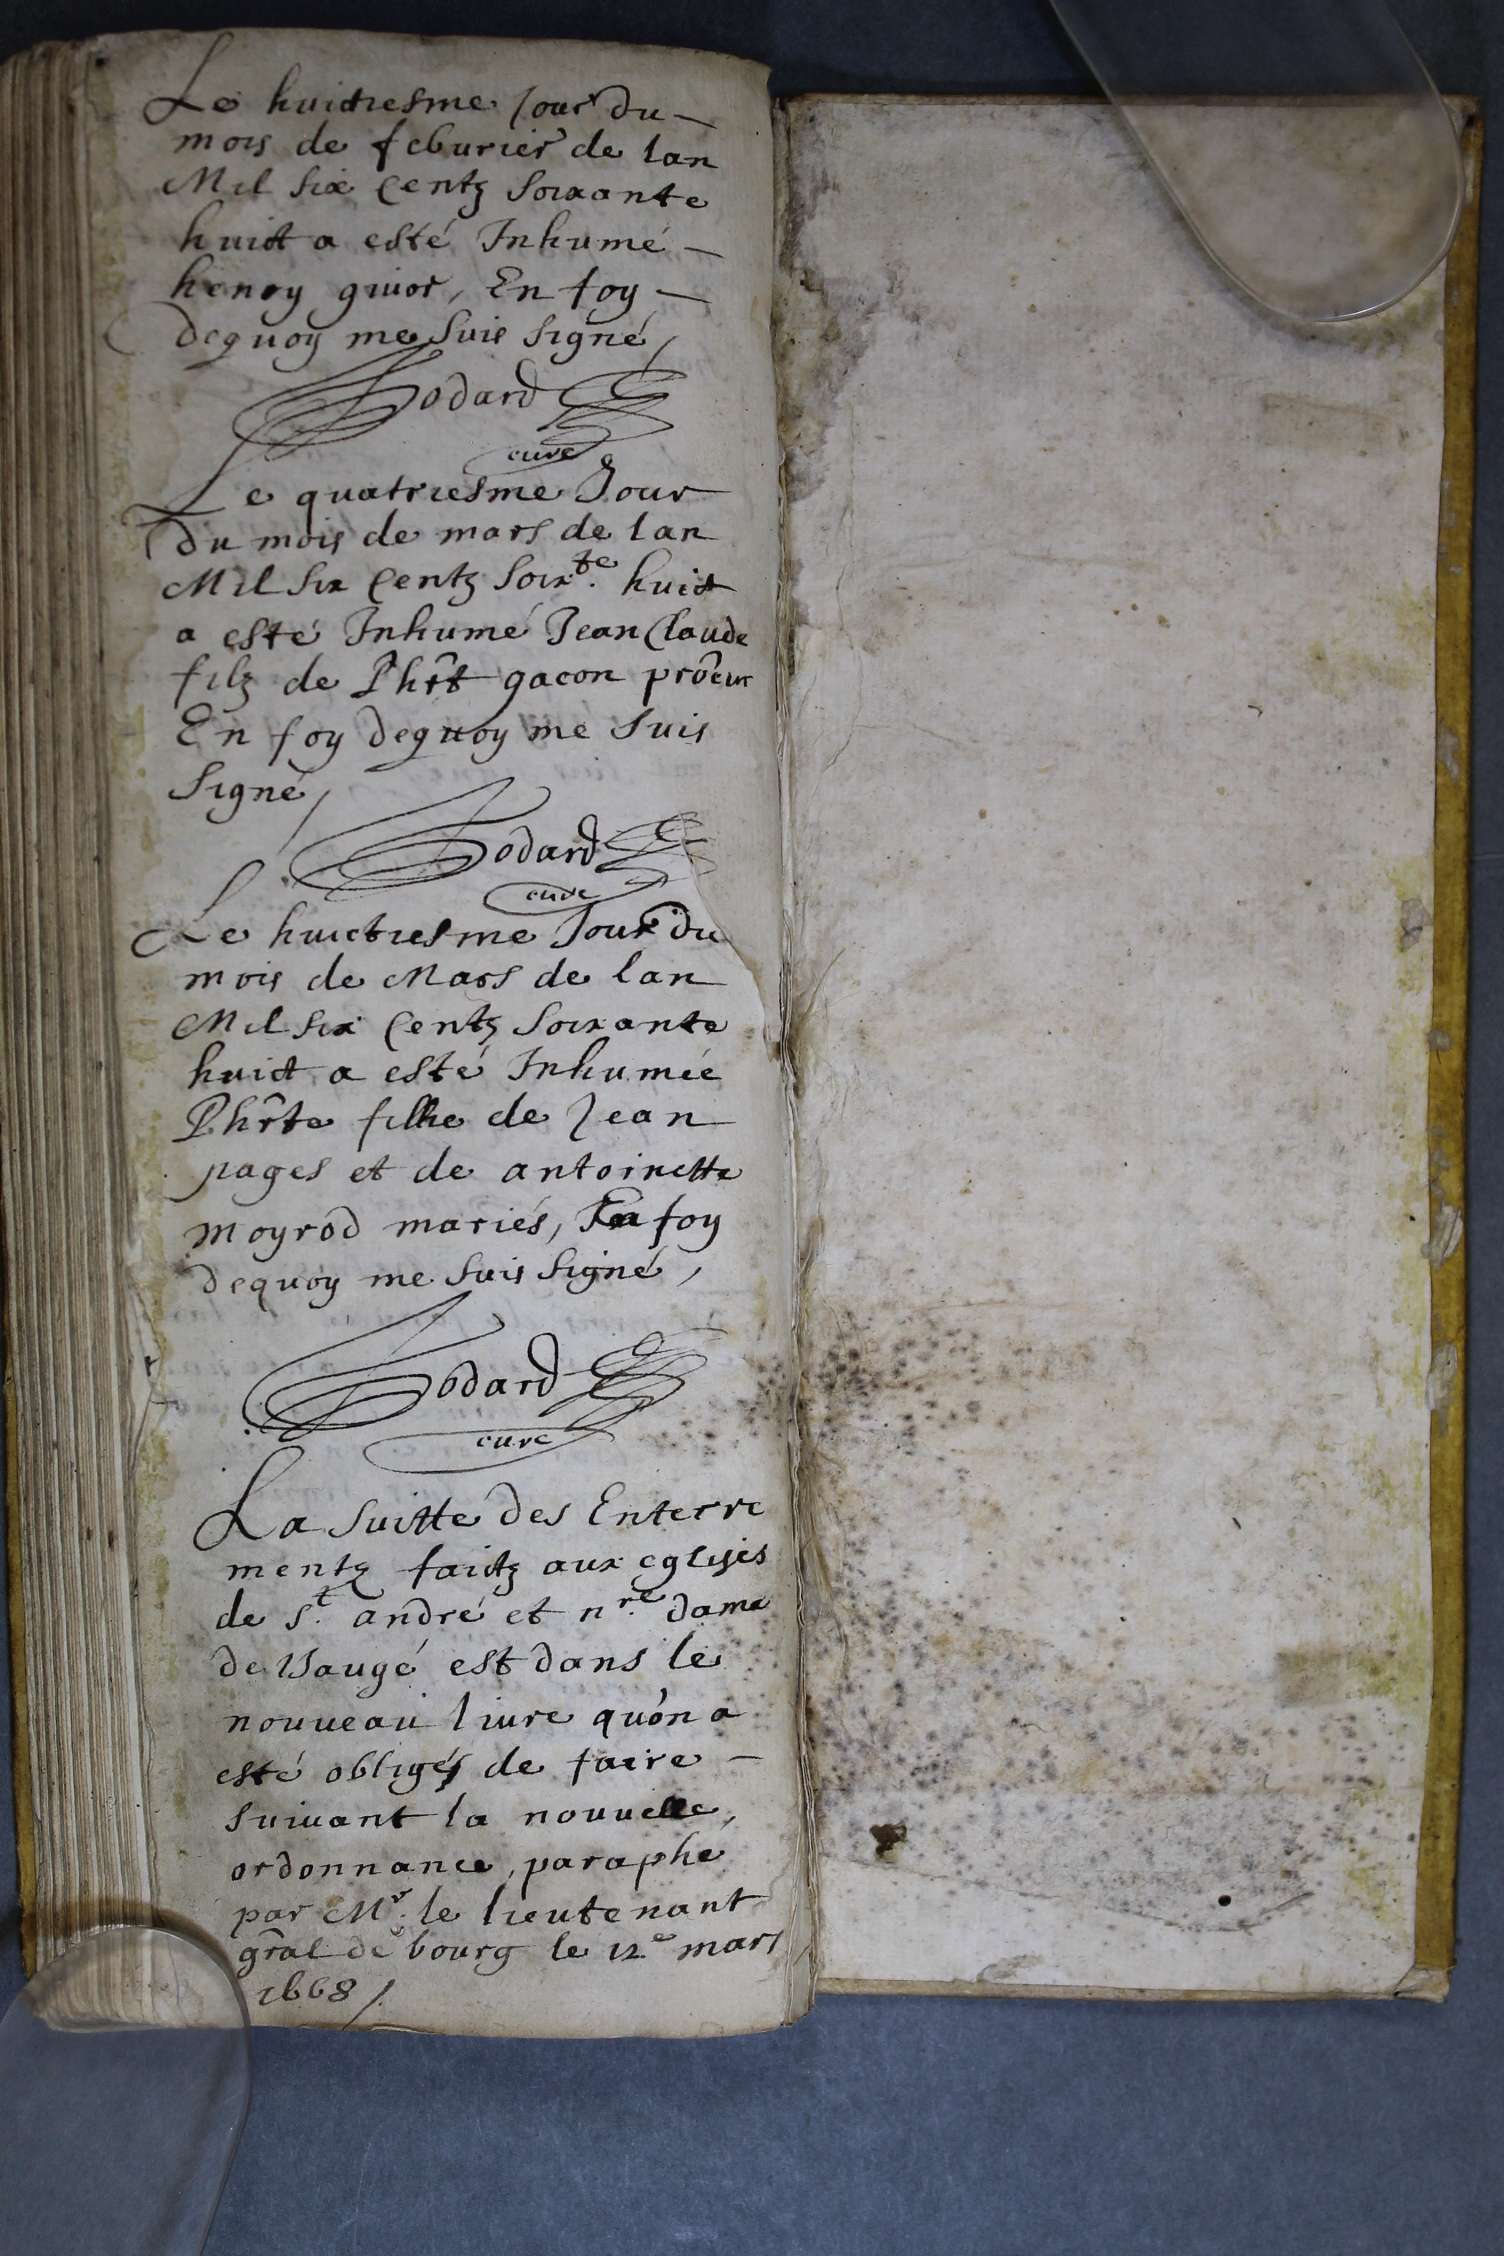 Le huictiesme Jour du
mois de feburier de lan
Mil six Centz soixante
huict a esté Inhumé
henry guior, En foy
dequoy me suis signé,
Godard
curé
Le quatriesme Jour
du mois de mars de lan
Mil six Centz soixte. huict
a esté Inhumé Jean Claude
filz de Phrt gacon procur
En foy dequoy me suis
signé,
Godard
curé
Le huictiesme Jour du
mois de Mars de lan
Mil six Centz soixante
huict a esté Inhumée
Phrte fille de Jean
pages et de antoinette
moyrod mariés, En foy
dequoy me suis signé,
Godard
cure
La suitte des Enterre
mentz faictz aux eglises
de st. andré et nre. dame
de Baugé est dans le
nouueau liure quon a
esté obligés de faire
suiuant la nouuelle,
ordonnance, paraphe
par Mr. le lieutenant
gral de bourg le 12e mars
1668/.